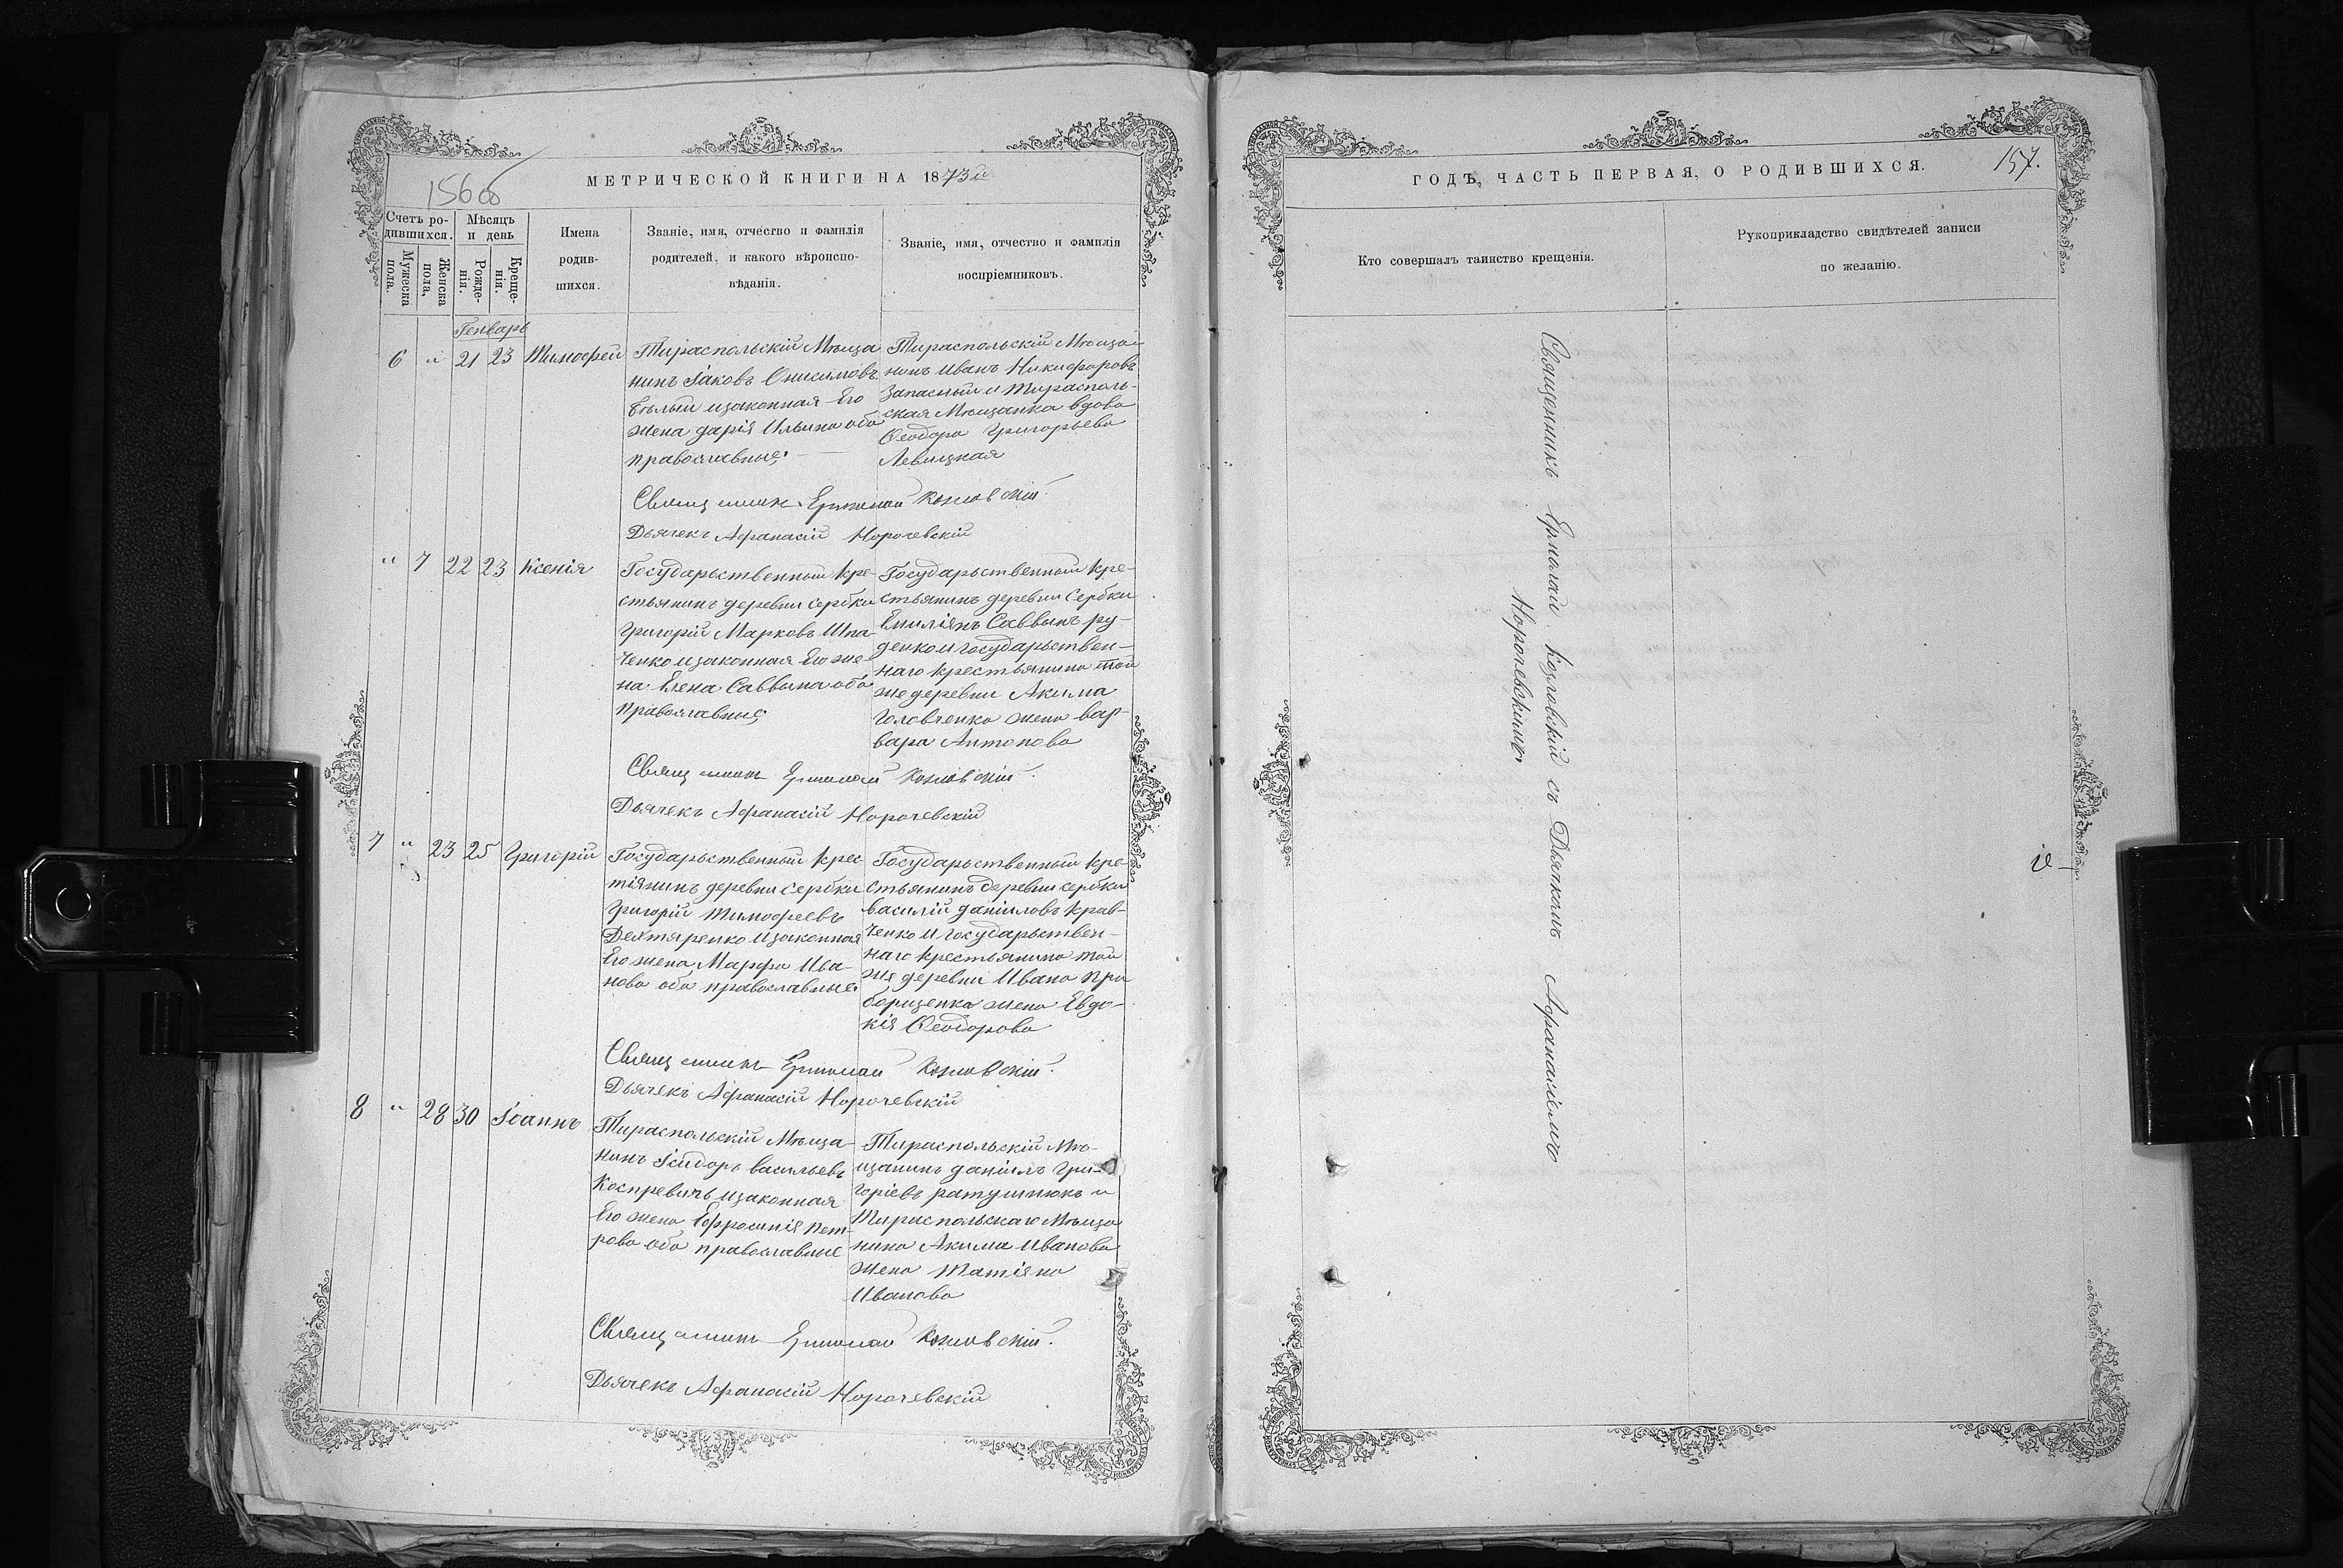 156 об
МЕТРИЧЕСКОЙ КНИГИ НА 1873й
Счетъ ро-
дившихся.
Мужеска
пола.
Женска
пола.
Мѣсяцъ
и день
Рожде-
нія.
Креще-
нія.
Имена
родив-
шихся.
Званіе, имя, отчество и фамилія
родителей, и какого вѣроиспо-
вѣданія.
Званіе, имя, отчество и фамилія
воспріемниковъ.
Генварь
6 " 21 23 Тимофей
Тираспольскій Мѣща
нинъ Іаковъ Онисимовъ
Бѣлый изаконная Его
жена дарія Ильина оба
православные.
Тираспольскій Мѣща-
нинъ Иванъ Никифоровъ
Запасный и Тирасполь-
ская Мѣщанка вдова
Ѳеодора Григорьева
Левицкая
Священникъ Ермолай Козловскій.
Дьячекъ Афанасій Норочевскій
" 7 22 23 Ксенія
Государьственный кре-
стьянинъ деревни сербки
Григорій Марковъ Шпа-
ченко изаконная Его же-
на Елена Саввина оба
православные
Государьственный кре-
стьянинъ деревни Сербки
Емиліянъ Саввинъ ру-
денко и государьствен-
наго крестьянина той
же деревни Акима
Головченка жена вар-
вара Антонова
Священникъ Ермолай Козловскій.
Дьячекъ Афанасій Норочевскій
7 " 23 25 Григорій
Государьственный крес
тіянинъ деревни сербки
Григорій Тимофеевъ
Дехтяренко изаконная
Его жена Марфа Ива-
нова оба православные
Государьственный кре-
стьянинъ деревни сербки
василій даніиловъ крав-
ченко и государьствен-
наго крестьянина той
же деревни Ивана При
борщенка жена Евдо-
кія Ѳеодорова
Священникъ Ермолай Козловскій.
Дьячекъ Афанасій Норочевскій
8 " 28 30 Іоаннъ
Тираспольскій Мѣща-
нинъ Ісидоръ васильевъ
Коспревичъ изаконная
Его жена Ефросинія Пет-
рова оба православные
Тираспольскій Мѣ-
щанинъ даніилъ Гри-
горіевъ ратушнюкъ и
Тираспольскаго Мѣща
нина Акима Иванова
жена Татіяна
Иванова
Священникъ Ермолай Козловскій.
Дьячекъ Афанасій Норочевскій
ГОДЪ, ЧАСТЬ ПЕРВАЯ, О РОДИВШИХСЯ.
157.
Кто совершалъ таинство крещенія.
Рукоприкладство свидѣтелей записи
по желанію.
Священникъ Ермолай Козловскій съ Дьячкомъ Афанасіемъ
Норочевскимъ